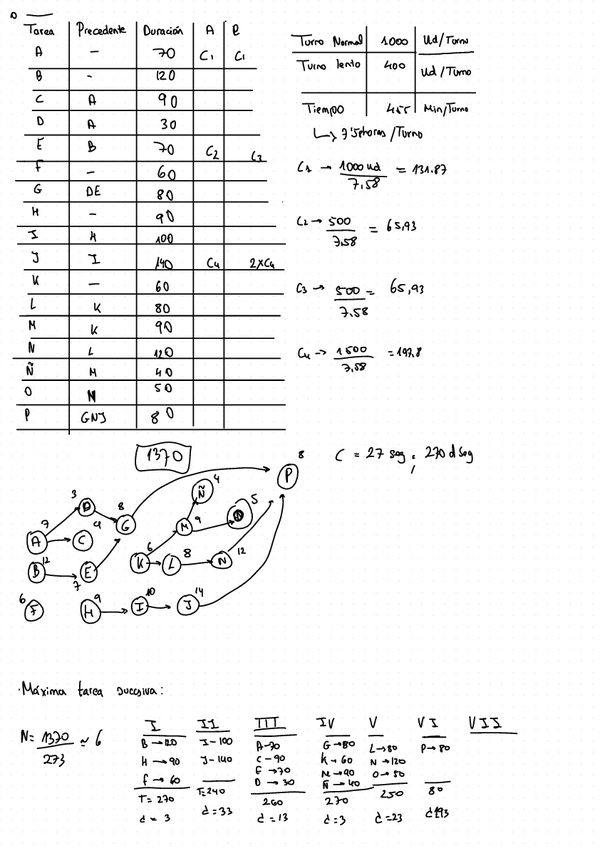 Tarea Precedente Duración A B
A - 70 C1 C1
B - 120
C A 90
D A 30
E B 70 C2 C3
F - 60
G DE 80
H - 90
I H 100
J I 140 C4 2xC4
K - 60
L K 80
M K 90
N L 120
Ñ M 40
O N 50
P GNJ 80
Turno Normal 1000 Ud/Turno
Turno lento 400 Ud/Turno
Tiempo 455 Min/Turno
↳ 7'58horas/Turno
C1 → 1000 ud / 7,58 = 131.87
C2 → 500 / 7.58 = 65,93
C3 → 500 / 7.58 = 65,93
C4 → 1500 / 7,58 = 197.8
1370
C = 27 seg ; 270 dseg
A 7
D 3
C 9
G 8
B 12
E 7
F 6
H 9
I 10
J 14
K 6
L 8
M 9
Ñ 4
5
N 12
P 8
·Máxima tarea sucesiva:
N = 1370 / 273 ≃ 6
I II III IV V VI VII
B → 120 I - 100 A - 70 G → 80 L → 80 P → 80
H → 90 J - 140 C - 90 K → 60 N → 120
F → 60 E → 70 M → 90 O → 50
D → 30 Ñ → 40
T = 270 T = 240 260 270 250 80
d = 3 d = 33 d = 13 d = 3 d = 23 d 193